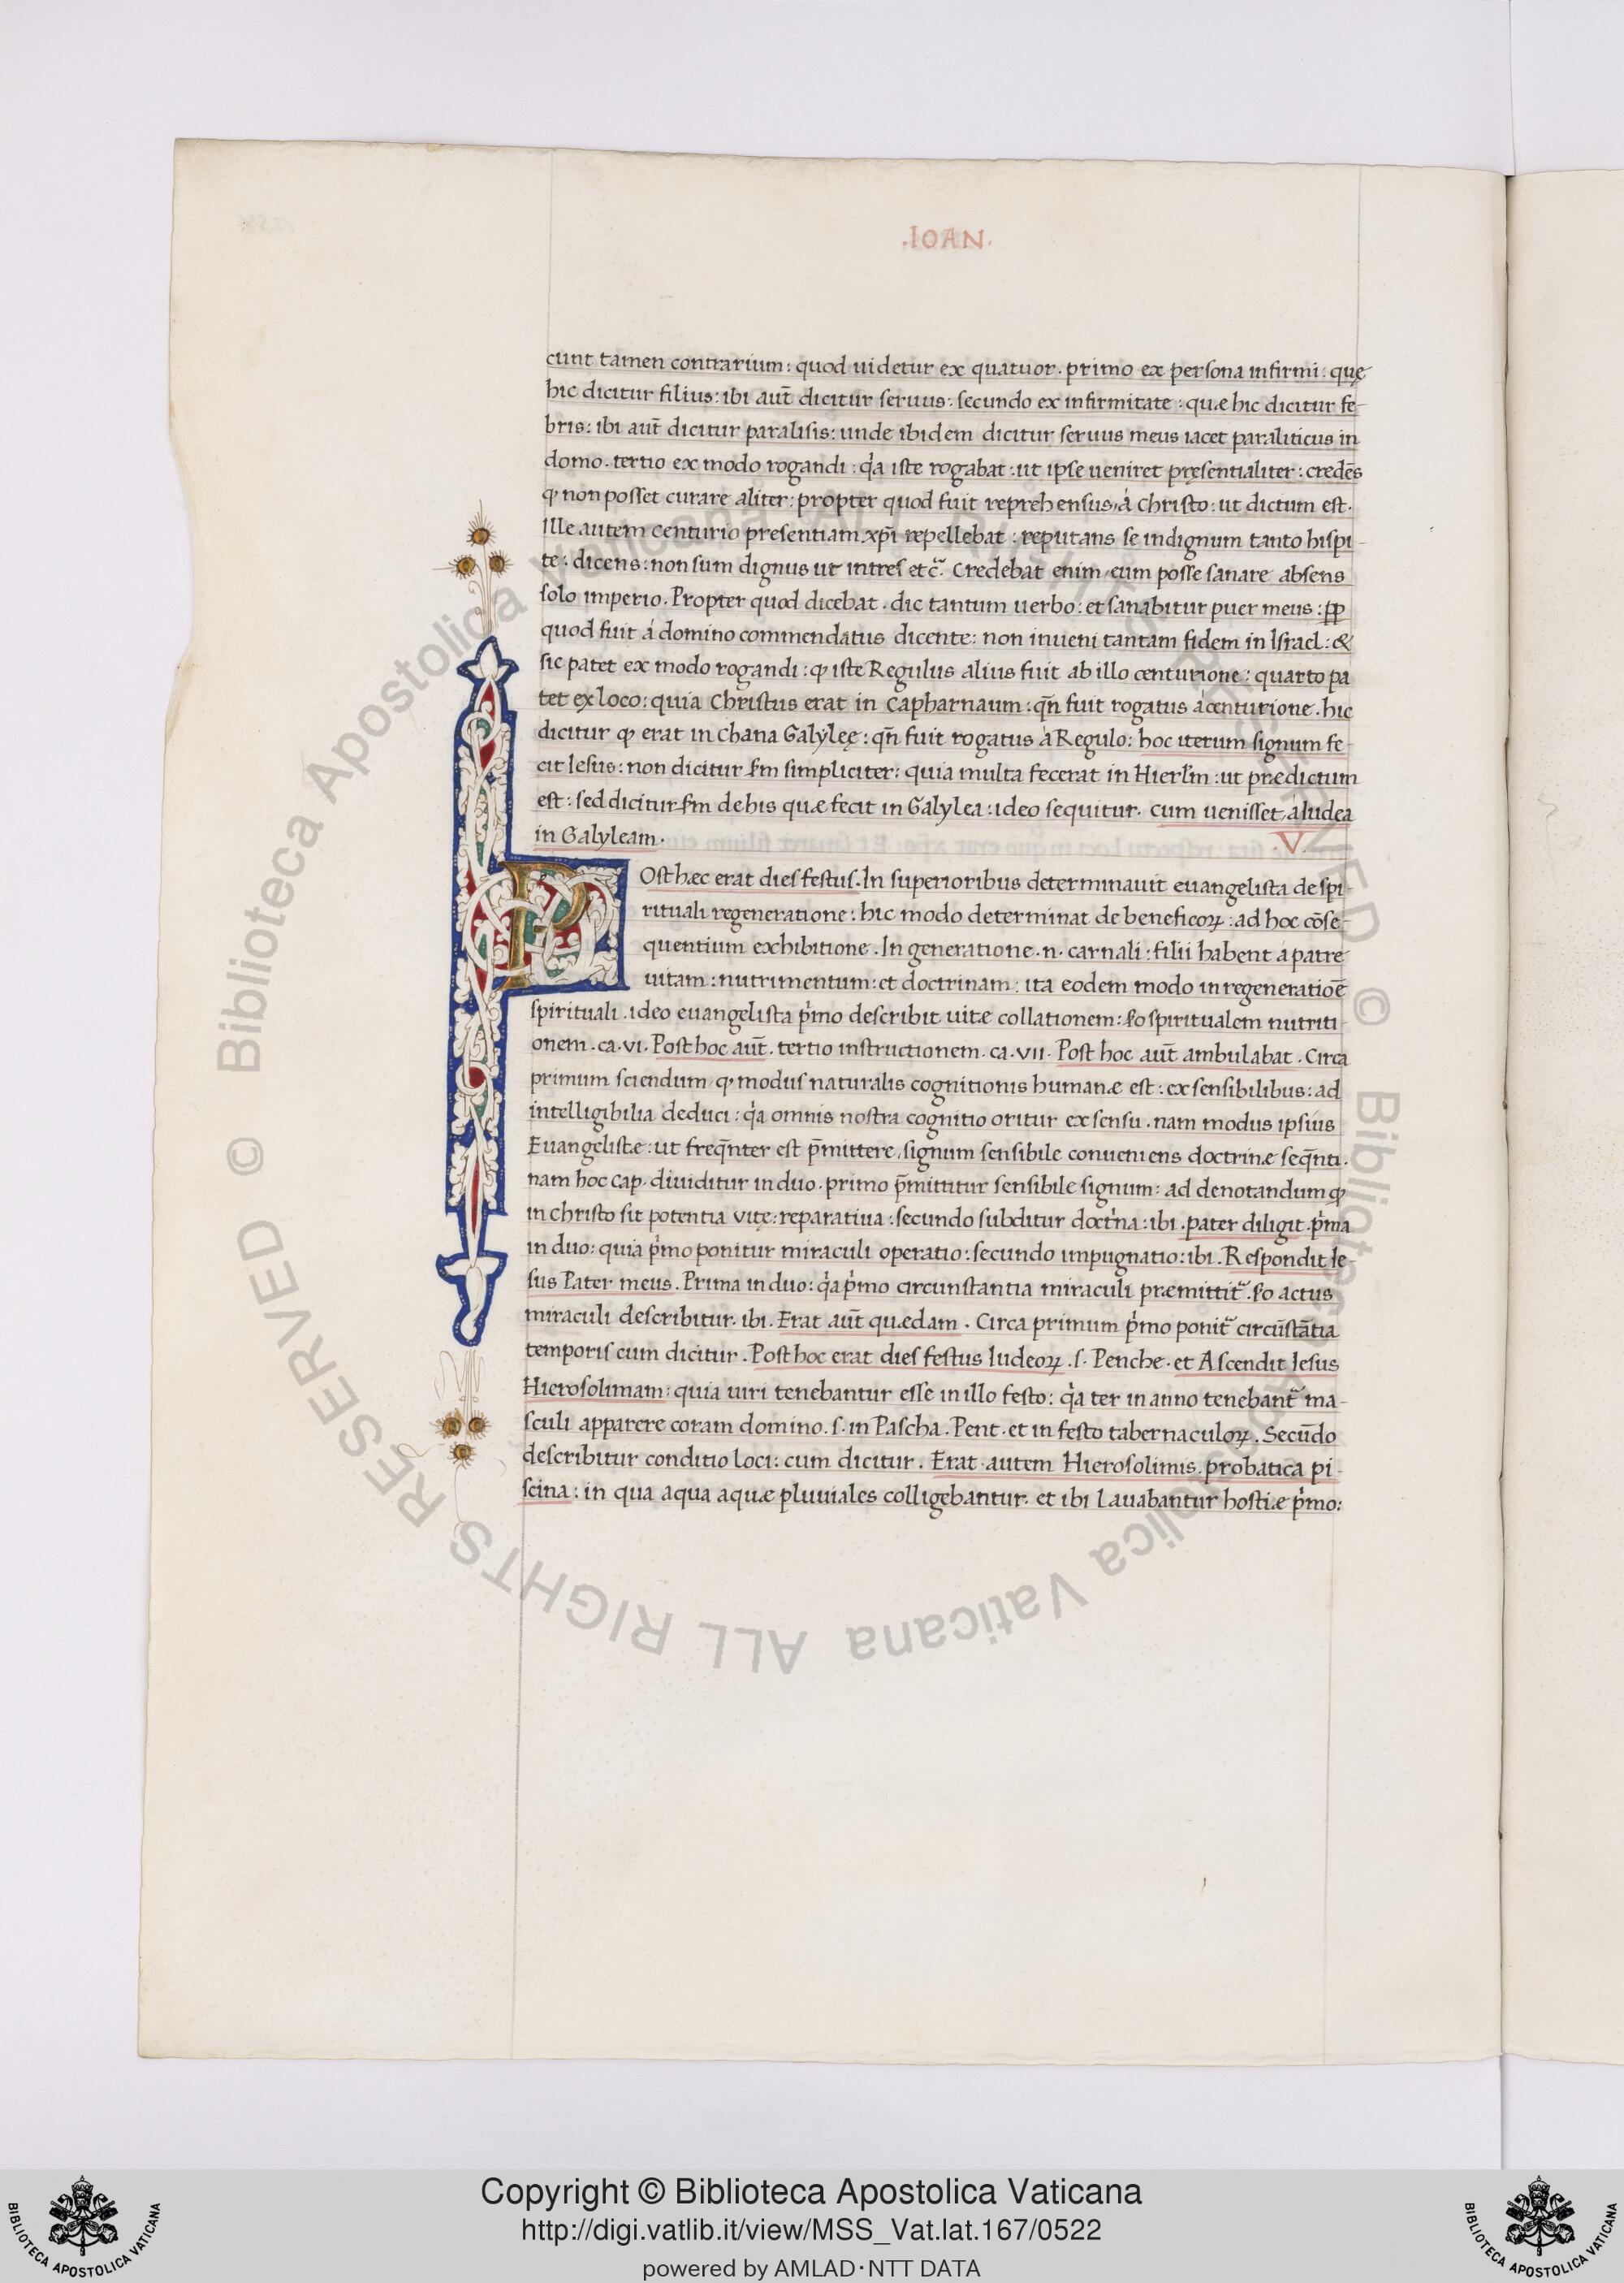 .IOAN.
cunt tamen contrarium: quod uidetur ex quatuor. primo ex persona infirmi: quę
hic dicitur filius: ibi aut̄ dicitur seruus: secundo ex infirmitate: quæ hic dicitur fe-
bris: ibi aut̄ dicitur paralisis: unde ibidem dicitur seruus meus iacet paraliticus in
domo. tertio ex modo rogandi: q̇a iste rogabat: ut ipse ueniret pręsentialiter: credēs
ꝙ non posset curare aliter: propter quod fuit reprehensus á Christo: ut dictum est.
Ille autem centurio presentiam xp̄i repellebat: reputans se indignum tanto hispi-
te: dicens: non sum dignus ut intres etc̃. Credebat enim eum posse sanare absens
solo imperio. Propter quod dicebat. dic tantum uerbo: et sanabitur puer meus: ꝓp
quod fuit á domino commendatus dicente: non inueni tantam fidem in Israel: &
sic patet ex modo rogandi: ꝙ iste Regulus alius fuit ab illo centurione: quarto pa
tet ex loco: quia Christus erat in Capharnaum: qn̄ fuit rogatus á centurione. hic
dicitur ꝙ erat in Chana Galylęę: qn̄ fuit rogatus á Regulo: hoc iterum signum fe-
cit Iesus: non dicitur scḋm simpliciter: quia multa fecerat in Hierl̄m: ut prædictum
est: sed dicitur scḋm de his quæ fecit in Galylea: ideo sequitur. cum uenisset á Iudea
in Galyleam.
.V.
POst hæc erat dies festus. In superioribus determinauit euangelista de spi-
rituali regeneratione: hic modo determinat de beneficoꝝ: ad hoc cōse-
quentium exhibitione. In generatione .n. carnali: filii habent a patre
uitam: nutrimentum: et doctrinam: ita eodem modo in regeneratiōe
spirituali. ideo euangelista p̍mo describit uitæ collationem: scḋo spiritualem nutriti-
onem. ca. vi. Post hoc aut̄. tertio instructionem. ca. vii. Post hoc aut̄ ambulabat. Circa
primum sciendum ꝙ modus naturalis cognitionis humanæ est: ex sensibilibus: ad
intelligibilia deduci: q̇a omnis nostra cognitio oritur ex sensu. nam modus ipsius
Euangelistæ: ut freq̄nter est p̄mittere signum sensibile conueniens doctrinæ seq̄nti.
nam hoc cap. diuiditur in duo. primo p̄mittitur sensibile signum: ad denotandum ꝙ
in Christo sit potentia vitę: reparatiua: secundo subditur doct̍na: ibi. pater diligit. p̍ma
in duo: quia p̍mo ponitur miraculi operatio: secundo impugnatio: ibi. Respondit Ie-
sus Pater meus. Prima in duo: q̇a p̍mo circunstantia miraculi præmittit̃. scḋo actus
miraculi describitur. ibi. Erat aut̄ quædam. Circa primum p̍mo ponit̃ circūstātia
temporis cum dicitur. Post hoc erat dies festus Iudeoꝝ. s. Penche. et Ascendit Iesus
Hierosolimam: quia uiri tenebantur esse in illo festo: q̇a ter in anno tenebant̃ ma-
sculi apparere coram domino. s. in Pascha. Pent. et in festo tabernaculoꝝ. Secūdo
describitur conditio loci: cum dicitur. Erat autem Hierosolimis probatica pi-
scina: in qua aqua aquæ pluuiales colligebantur. et ibi lauabantur hostiæ p̍mo:
© Biblioteca Apostolica Vaticana ALL RIGHTS RESERVED
© Biblioteca Apostolica Vaticana ALL RIGHTS RESERVED
Copyright © Biblioteca Apostolica Vaticana
http://digi.vatlib.it/view/MSS_Vat.lat.167/0522
powered by AMLAD·NTT DATA
BIBLIOTECA APOSTOLICA VATICANA
BIBLIOTECA APOSTOLICA VATICANA